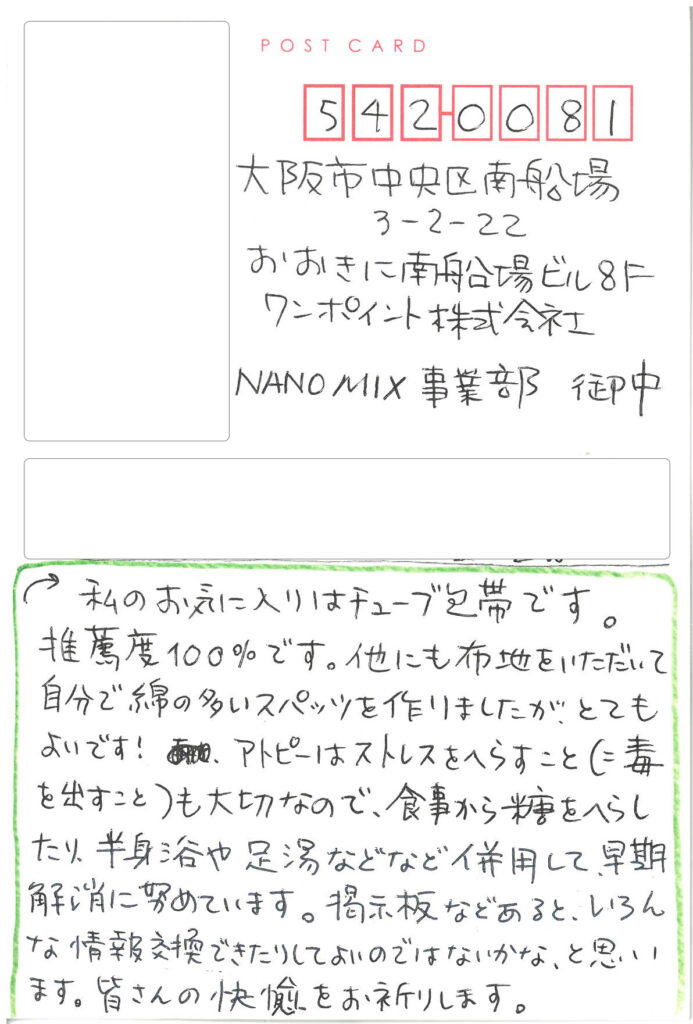 POST CARD
542-0081
大阪市中央区南船場
3-2-22
おおきに南船場ビル8F
ワンポイント株式会社
NANO MIX 事業部 御中
私のお気に入りはチューブ包帯です。
推薦度100%です。他にも布地をいただいて
自分で綿の多いスパッツを作りましたが、とても
よいです! アトピーはストレスをへらすこと(=毒
を出すこと)も大切なので、食事から糖をへらし
たり、半身浴や足湯などなど併用して、早期
解消に努めています。掲示板などあると、いろん
な情報交換できたりしてよいのではないかな、と思い
ます。皆さんの快癒をお祈りします。